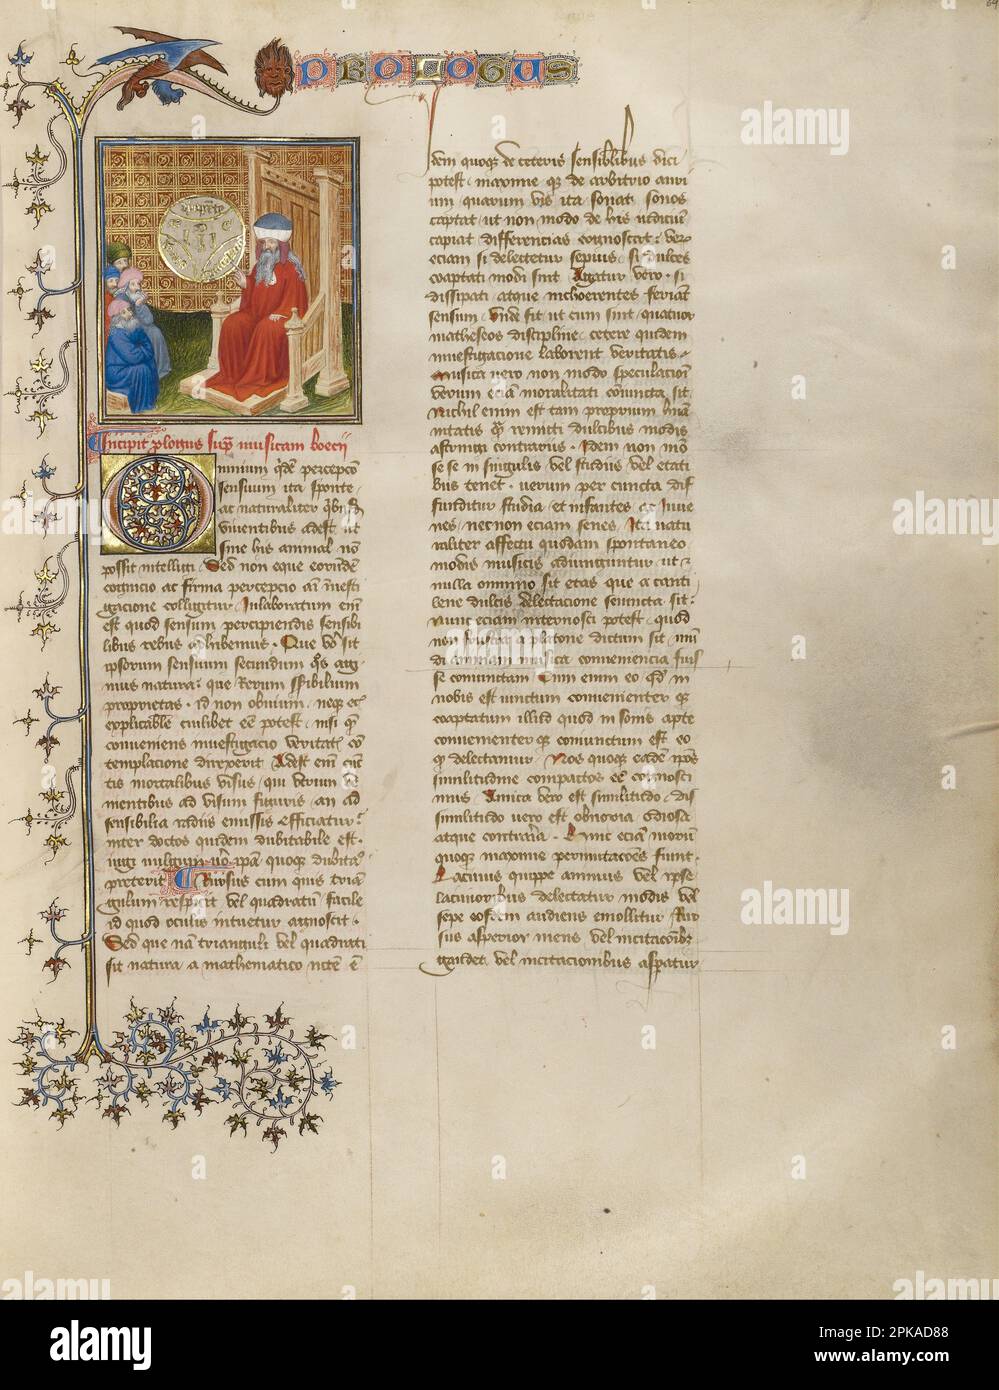 PROLOGUS
Incipit plogus sup musicam boecii
Omnium qde percepcio
sensuum ita sponte
ac naturaliter qbusdam
viventibus adest ut
sine his animal no
possit intelligi Sed non eque eorundem
cognicio ac firma percepcio ai investi
gacione colligitur Inlaboratum em
est quod sensum percipiendis sensibi
libus rebus adhibemus Que vo sit
ipsorum sensuum secundum qs agi
mus natura que rerum sensibilium
proprietas id non obvium neque
explicabile cuilibet ee potest nisi que
conveniens investigacio veritatis con
templacione direxerit Adest em cunc
tis mortalibus visus qui utrum ve
nientibus ad visum figuris an ad
sensibilia radiis emissis efficiatur
inter doctos quidem dubitabile est
vulgum vo ipa quoque dubitacio
preterit Rursus cum quis trian
gulum respicit vel quadratum facile
id quod oculis intuetur agnoscit
Sed que nam trianguli vel quadrati
sit natura a mathematico necesse e
Idem quoque de ceteris sensibilibus dici
potest maxime que de arbitrio auri
um quarum vis ita sonat sonos
captat ut non modo de his iudicium
capiat differencias cognoscat ver
eciam si delectetur sepius si dulces
coaptati modi sint Agatur vero si
dissipati atque incoherentes feriant
sensum Unde fit ut cum sint quatuor
matheseos discipline cetere quidem
investigacione laborent veritatis
Musica vero non modo speculacioni
verum eciam moralitati coniuncta sit
Nichil enim est tam proprium huma
nitatis quam remitti dulcibus modis
astringi contrariis Idem non mo
se se in singulis vel studiis vel etati
bus tenet verum per cuncta dif
funditur studia et infantes ac iuve
nes nec non eciam senes Ita natu
raliter affectu quodam spontaneo
modis musicis adiunguntur ut
nulla omnino sit etas que a canti
lene dulcis delectacione seiuncta sit
Hinc eciam internosci potest quod
non frustra a platone dictum sit mun
di animam musica conveniencia fuis
se coniunctam Cum enim eo qd in
nobis est iunctum convenienter que
coaptatum illud quod in sonis apte
convenienter que coniunctum est eo
que delectamur Nos quoque eadem ipsos
similitudine compactos ee cognosci
mus Amica vero est similitudo dis
similitudo vero est obnoxia odiosa
atque contraria Hinc eciam morum
quoque maxime permutaciones fiunt
Lacivus quippe animus vel ipse
lacivioribus delectatur modis vel
sepe eosdem audiens emollitur Rur
sus asperior mens vel incitacioribus
gaudet vel incitacionibus aspatur
alamy
Image ID: 2PKAD88
www.alamy.com